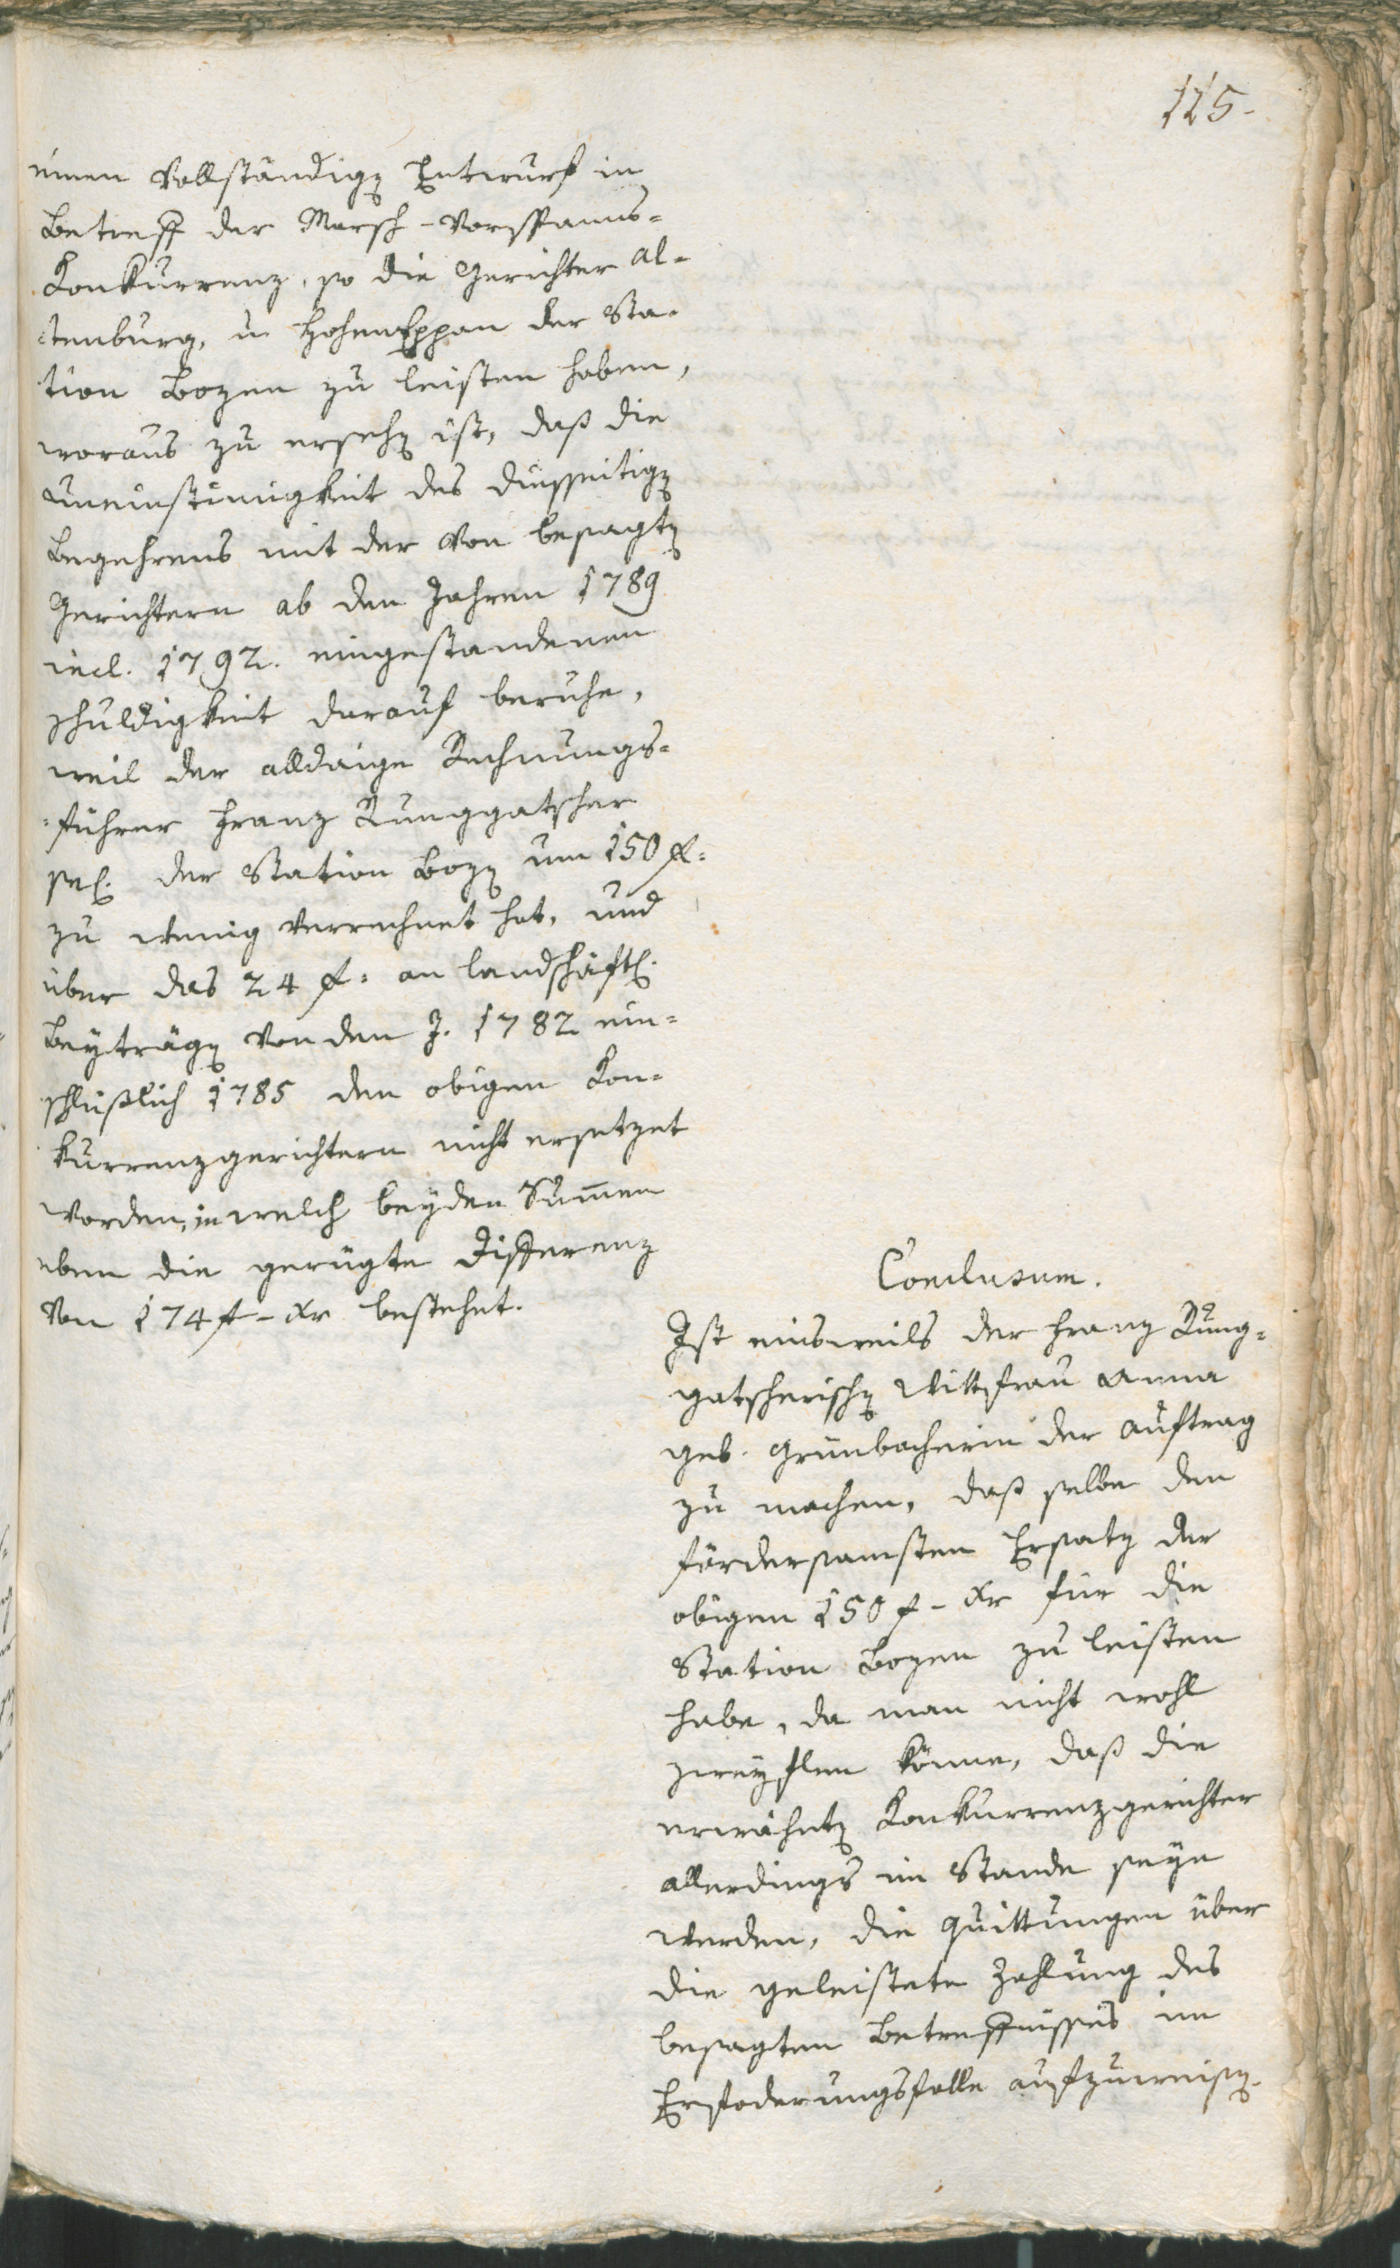 115.
einen vollständigen Entwurf in
Betreff der Marsch-Vorspanns-
Konkurrenz, so die Gerichter Al-
tenburg, u Hoheneppan der Sta-
tion Bozen zu leisten haben,
woraus zu ersehen ist, daß die
Uneinstimigkeit des diesseitigen
Begehrens mit der von besagten
Gerichtern ab den Jahren 1789
incl. 1792. eingestandenen
Schuldigkeit darauf beruhe,
weil der alldaige Rechnungs-
führer Franz Runggatscher
sel. der Station Bozen um 150 f:
zu wenig verrechnet hat, und
über das 24 f: an landschäftl.
Beyträgen von den J. 1782 ein-
schlüßlich 1785 den obigen Kon-
kurrenzgerichtern nicht ersetzet
worden, in welch beyden Summen
eben die gerügte Differenz
von 174 f - xr bestehet.
Conclusum.
Ist einsweils der Franz Rung-
gatscherischen Wittfrau Anna
geb. Grünbacherin der Auftrag
zu machen, daß selbe den
fördersamsten Ersatz der
obigen 150 f - xr für die
Station Bozen zu leisten
habe, da man nicht wohl
zweyflen könne, daß die
erwähnten Konkurrenzgerichter
allerdings im Stande seyn
werden, die Quittungen über
die geleistete Zahlung des
besagten Betreffnisses im
Erfoderungsfalle aufzuweisen.